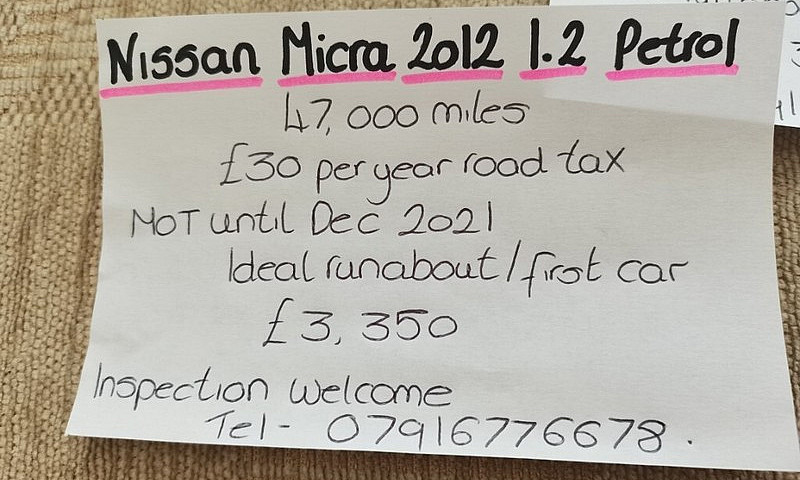 Nissan Micra 2012 1.2 Petrol
47,000 miles
£30 per year road tax
MOT until Dec 2021
Ideal runabout/first car
£3,350
Inspection welcome
Tel- 07916776678.